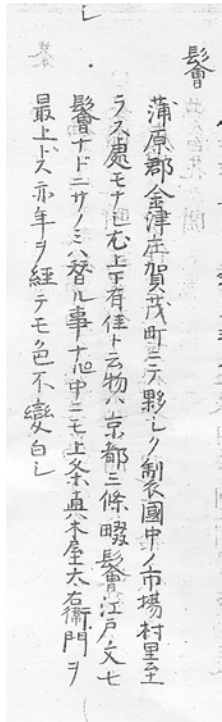 鬠
蒲原郡金津庄賀茂町ニテ夥シク制衣國中ノ市場村里至
ラス處モナシ尤上下有佳ト云物ハ京都三條畷鬠江戸ノ文七
鬠ナドニサノミハ替ル事ナシ中ニモ上条真木屋太右衛門ヲ
最上トス亦年ヲ經テモ色不變白シ